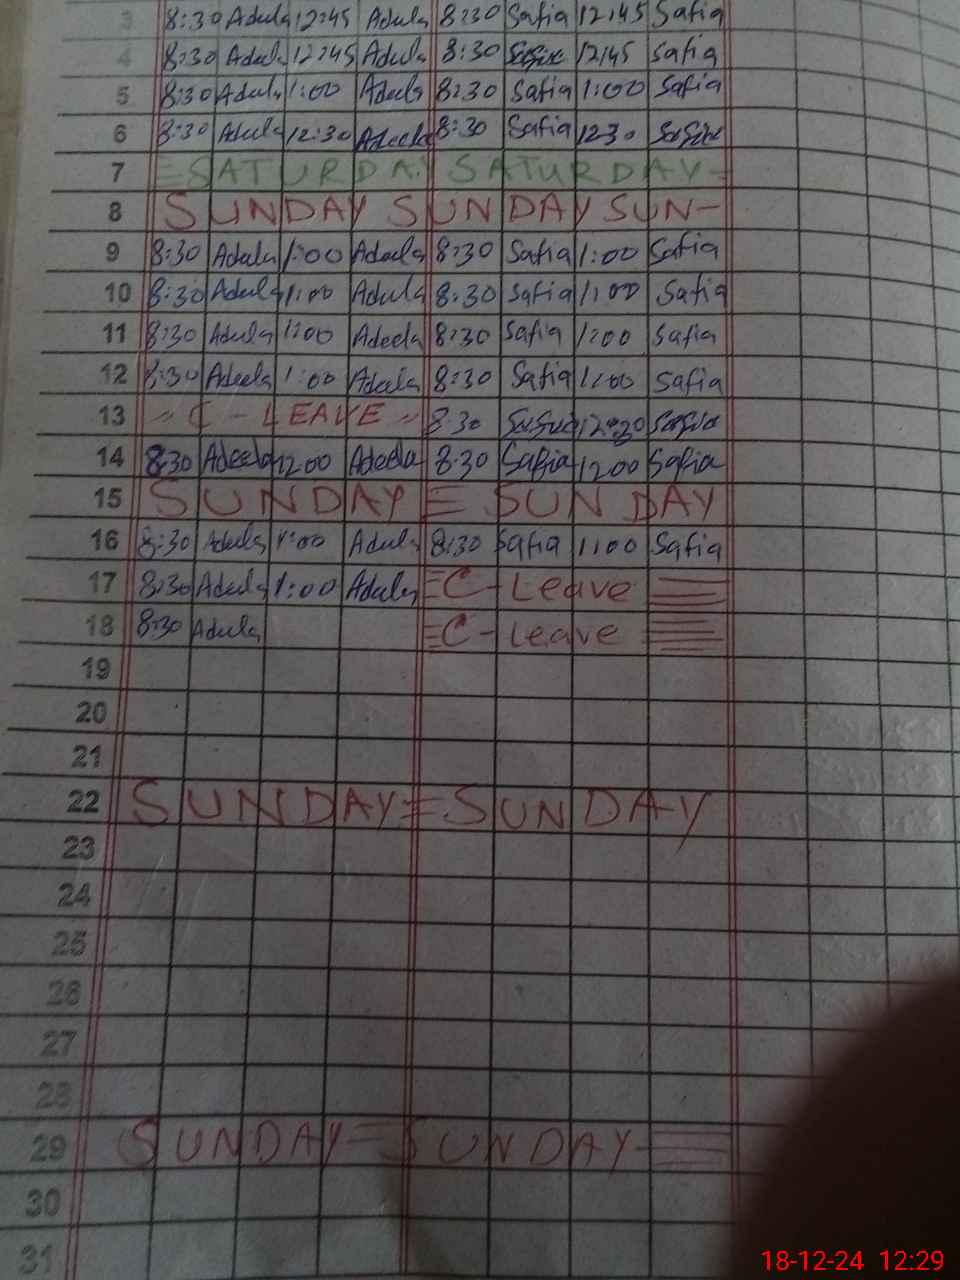 3 8:30 Adula 12:45 Adula 8:30 Safia 12:45 Safia
4 8:30 Adula 12:45 Adula 8:30 12:45 Safia
5 8:30 Adula 1:00 Adula 8:30 Safia 1:00 Safia
6 8:30 Adula 12:30 Adeela 8:30 Safia 1230
7 SATURDAY SATURDAY
8 SUNDAY SUNDAY SUN
9 8:30 Adula 1:00 Adeela 8:30 Safia 1:00 Safia
10 8:30 Adula 1:00 Adula 8:30 Safia 1:00 Safia
11 8:30 Adula 1:00 Adeela 8:30 Safia 1:00 Safia
12 8:30 Adeela 1:00 Adeela 8:30 Safia 1:00 Safia
13 " C - LEAVE " 8:30 12:30
14 8:30 Adeela 12:00 Adeela 8:30 Safia 1200 Safia
15 SUNDAY = SUNDAY
16 8:30 Adula 1:00 Adula 8:30 Safia 1:00 Safia
17 8:30 Adula 1:00 Adula = C - Leave
18 8:30 Adula = C - Leave
19
20
21
22 SUNDAY = SUNDAY
23
24
25
26
27
28
29 SUNDAY = SUNDAY
30
31
18-12-24 12:29